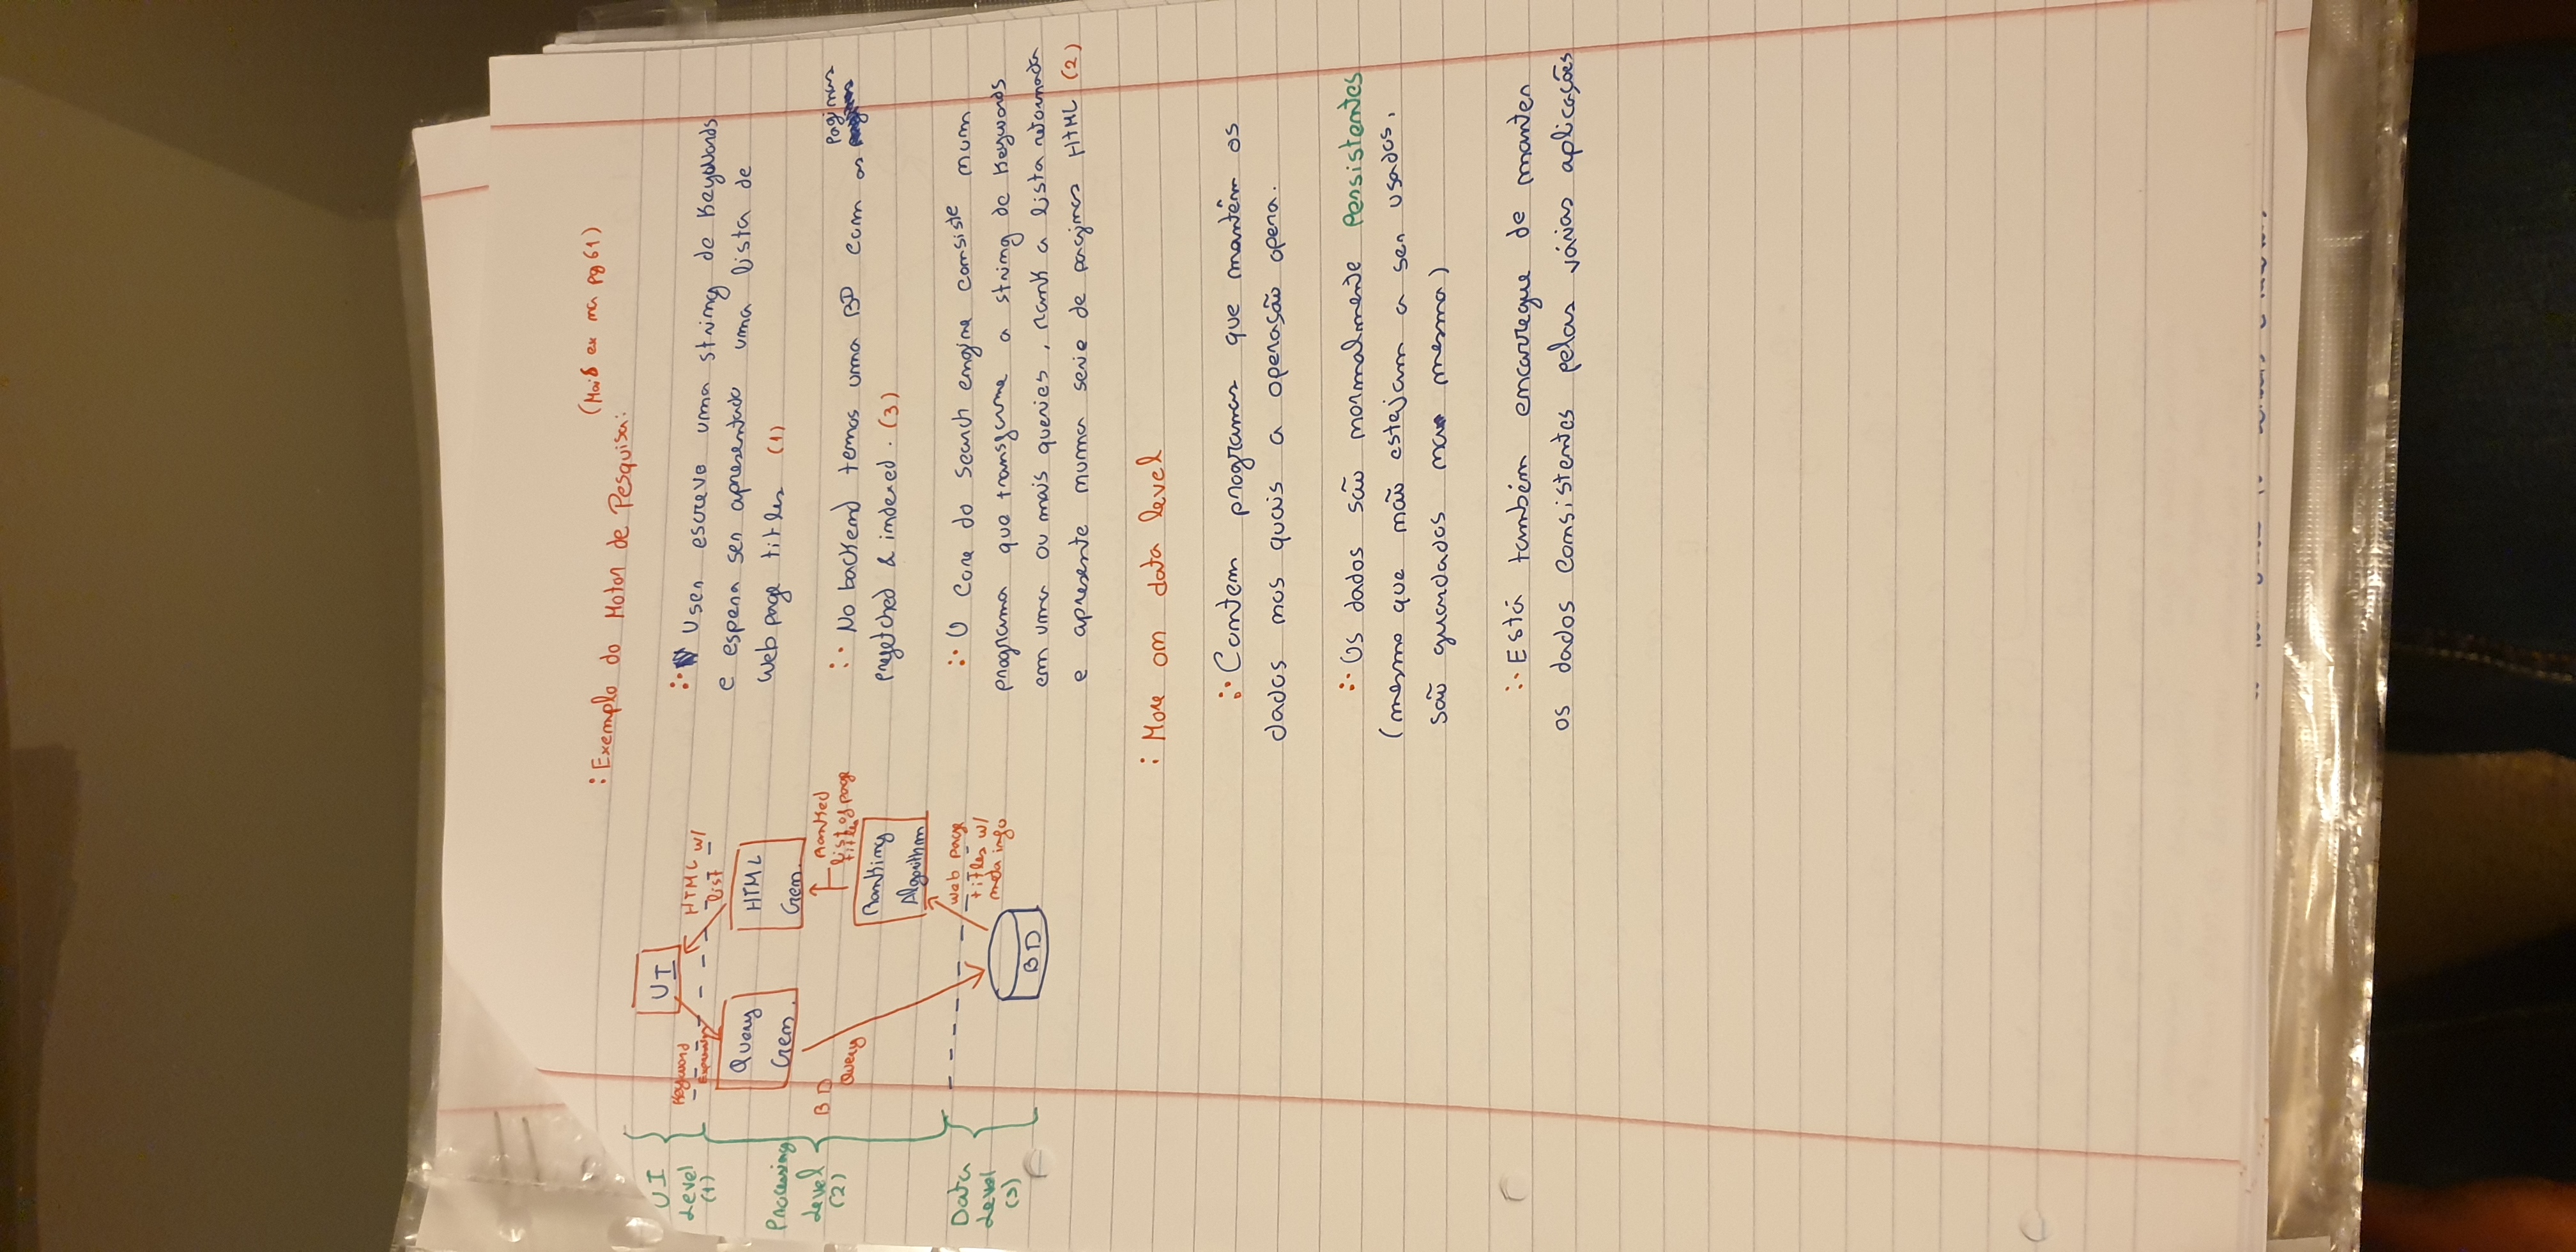 (Mais ex na pg 61)
: Exemplo do Motor de Pesquisa:
UI
Level
(1)
UI
Keyword
Expansion
HTML w/
list
Query
Gen.
HTML
Gen.
Processing
Level
(2)
BD
Query
Ranked
list of page
titles
Ranking
Algorithm
Data
Level
(3)
web page
titles w/
meta info
BD
∴ User escreve uma string de Keywords
e espera ser apresentado uma lista de
Web page titles (1)
∴ No backend temos uma BD com as paginas
prefetched & indexed. (3)
∴ O Core do search engine consiste num
programa que transforme a string de Keywords
em uma ou mais queries, rank a lista retornada
e apresente numa serie de paginas HTML (2)
: More on data level
∴ Contem programas que mantêm os
dados nos quais a operação opera.
∴ Os dados são normalmente Persistentes
(mesmo que não estejam a ser usados,
são guardados na mesma)
∴ Está também encarregue de manter
os dados consistentes pelas várias aplicações